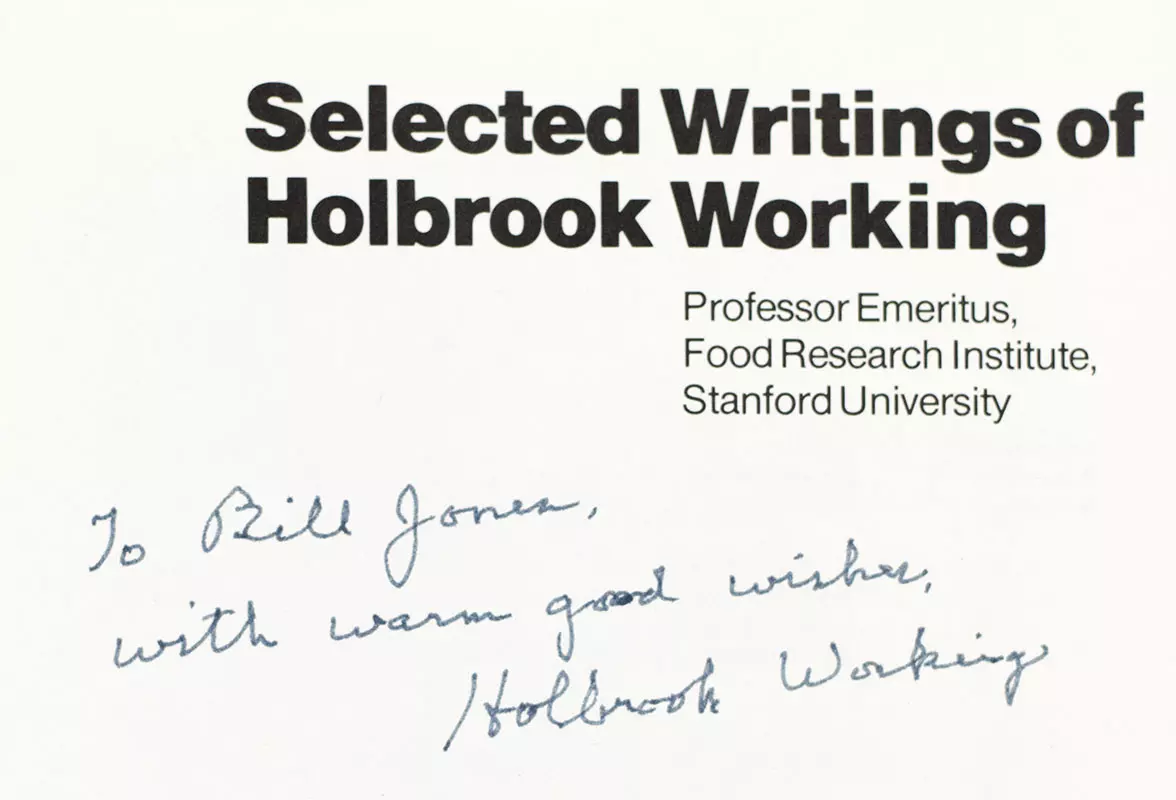 Selected Writings of
Holbrook Working
Professor Emeritus,
Food Research Institute,
Stanford University
To Bill Jones,
with warm good wishes,
Holbrook Working